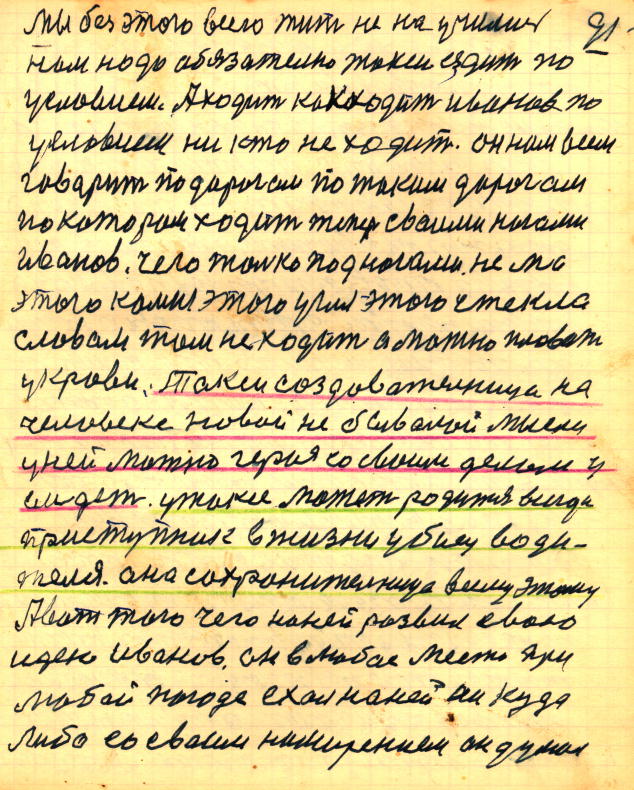 91
мы без этого всего жить не на училися
нам надо обязательно такси ездит по
условием. А ходит как ходит иванов по
условием ни кто не ходит. он нам всем
говарит по дорогам по таким дорогам
по котором ходит теперь сваими ногами
иванов. чего толко под ногами. не
этого камня этого угля этого стекла
словам там не ходит а можно плават
у крови. Такси создователница на
человеке новой не бывалой мысли
у ней можно героя со своим делом у
видет. у такси может родится всегда
приступник в жизни убиец води-
теля. она сохронителница всему этому
А вот того чего на ней развил сваю
идею иванов. он в любое место при
любой погоде ехал на ней он куда
либо со сваим намирением он думал